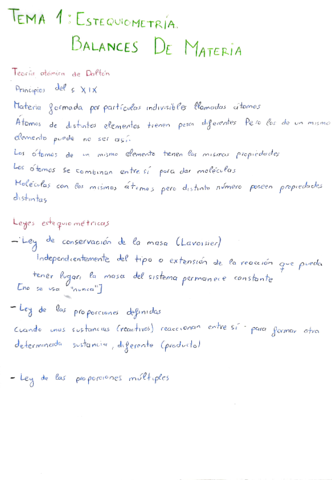 TEMA 1: ESTEQUIOMETRÍA.
BALANCES DE MATERIA
Teoría atómica de Dalton
Principios del s XIX
Materia formada por partículas indivisibles llamadas átomos.
Átomos de distintos elementos tienen peso diferentes. Pero los de un mismo
elemento puede no ser así.
Los átomos de un mismo elemento tienen las mismas propiedades
Los átomos se combinan entre sí para dar moléculas
Moléculas con los mismos átomos, pero distinto número poseen propiedades
distintas
Leyes estequiométricas
- Ley de conservación de la masa (Lavoisier)
Independientemente del tipo o extensión de la reacción que pueda
tener lugar, la masa del sistema permanece constante
[no se usa "nunca"]
- Ley de las proporciones definidas
cuando unas sustancias (reactivos) reaccionan entre sí para formar otra
determinada sustancia, diferente (producto)
- Ley de las proporciones múltiples